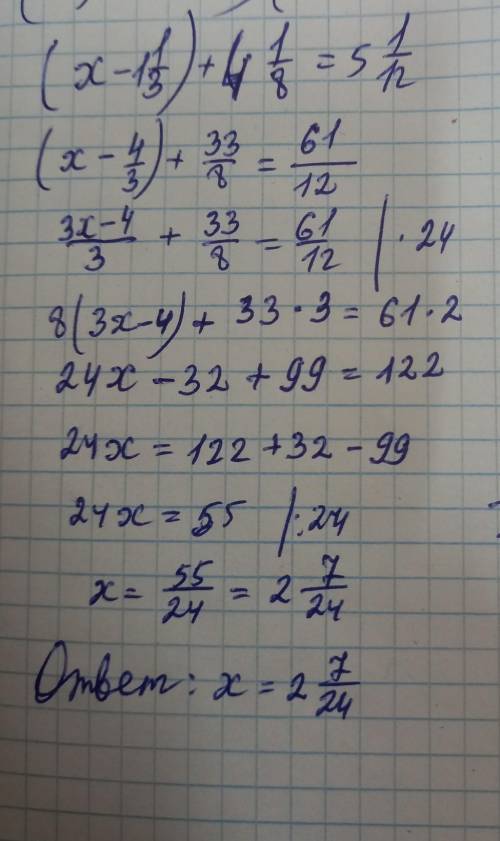 (x - 1 1/3) + 4 1/8 = 5 1/12
(x - 4/3) + 33/8 = 61/12
3x-4/3 + 33/8 = 61/12 | · 24
8(3x-4) + 33 · 3 = 61 · 2
24x - 32 + 99 = 122
24x = 122 + 32 - 99
24x = 55 | : 24
x = 55/24 = 2 7/24
Ответ: x = 2 7/24